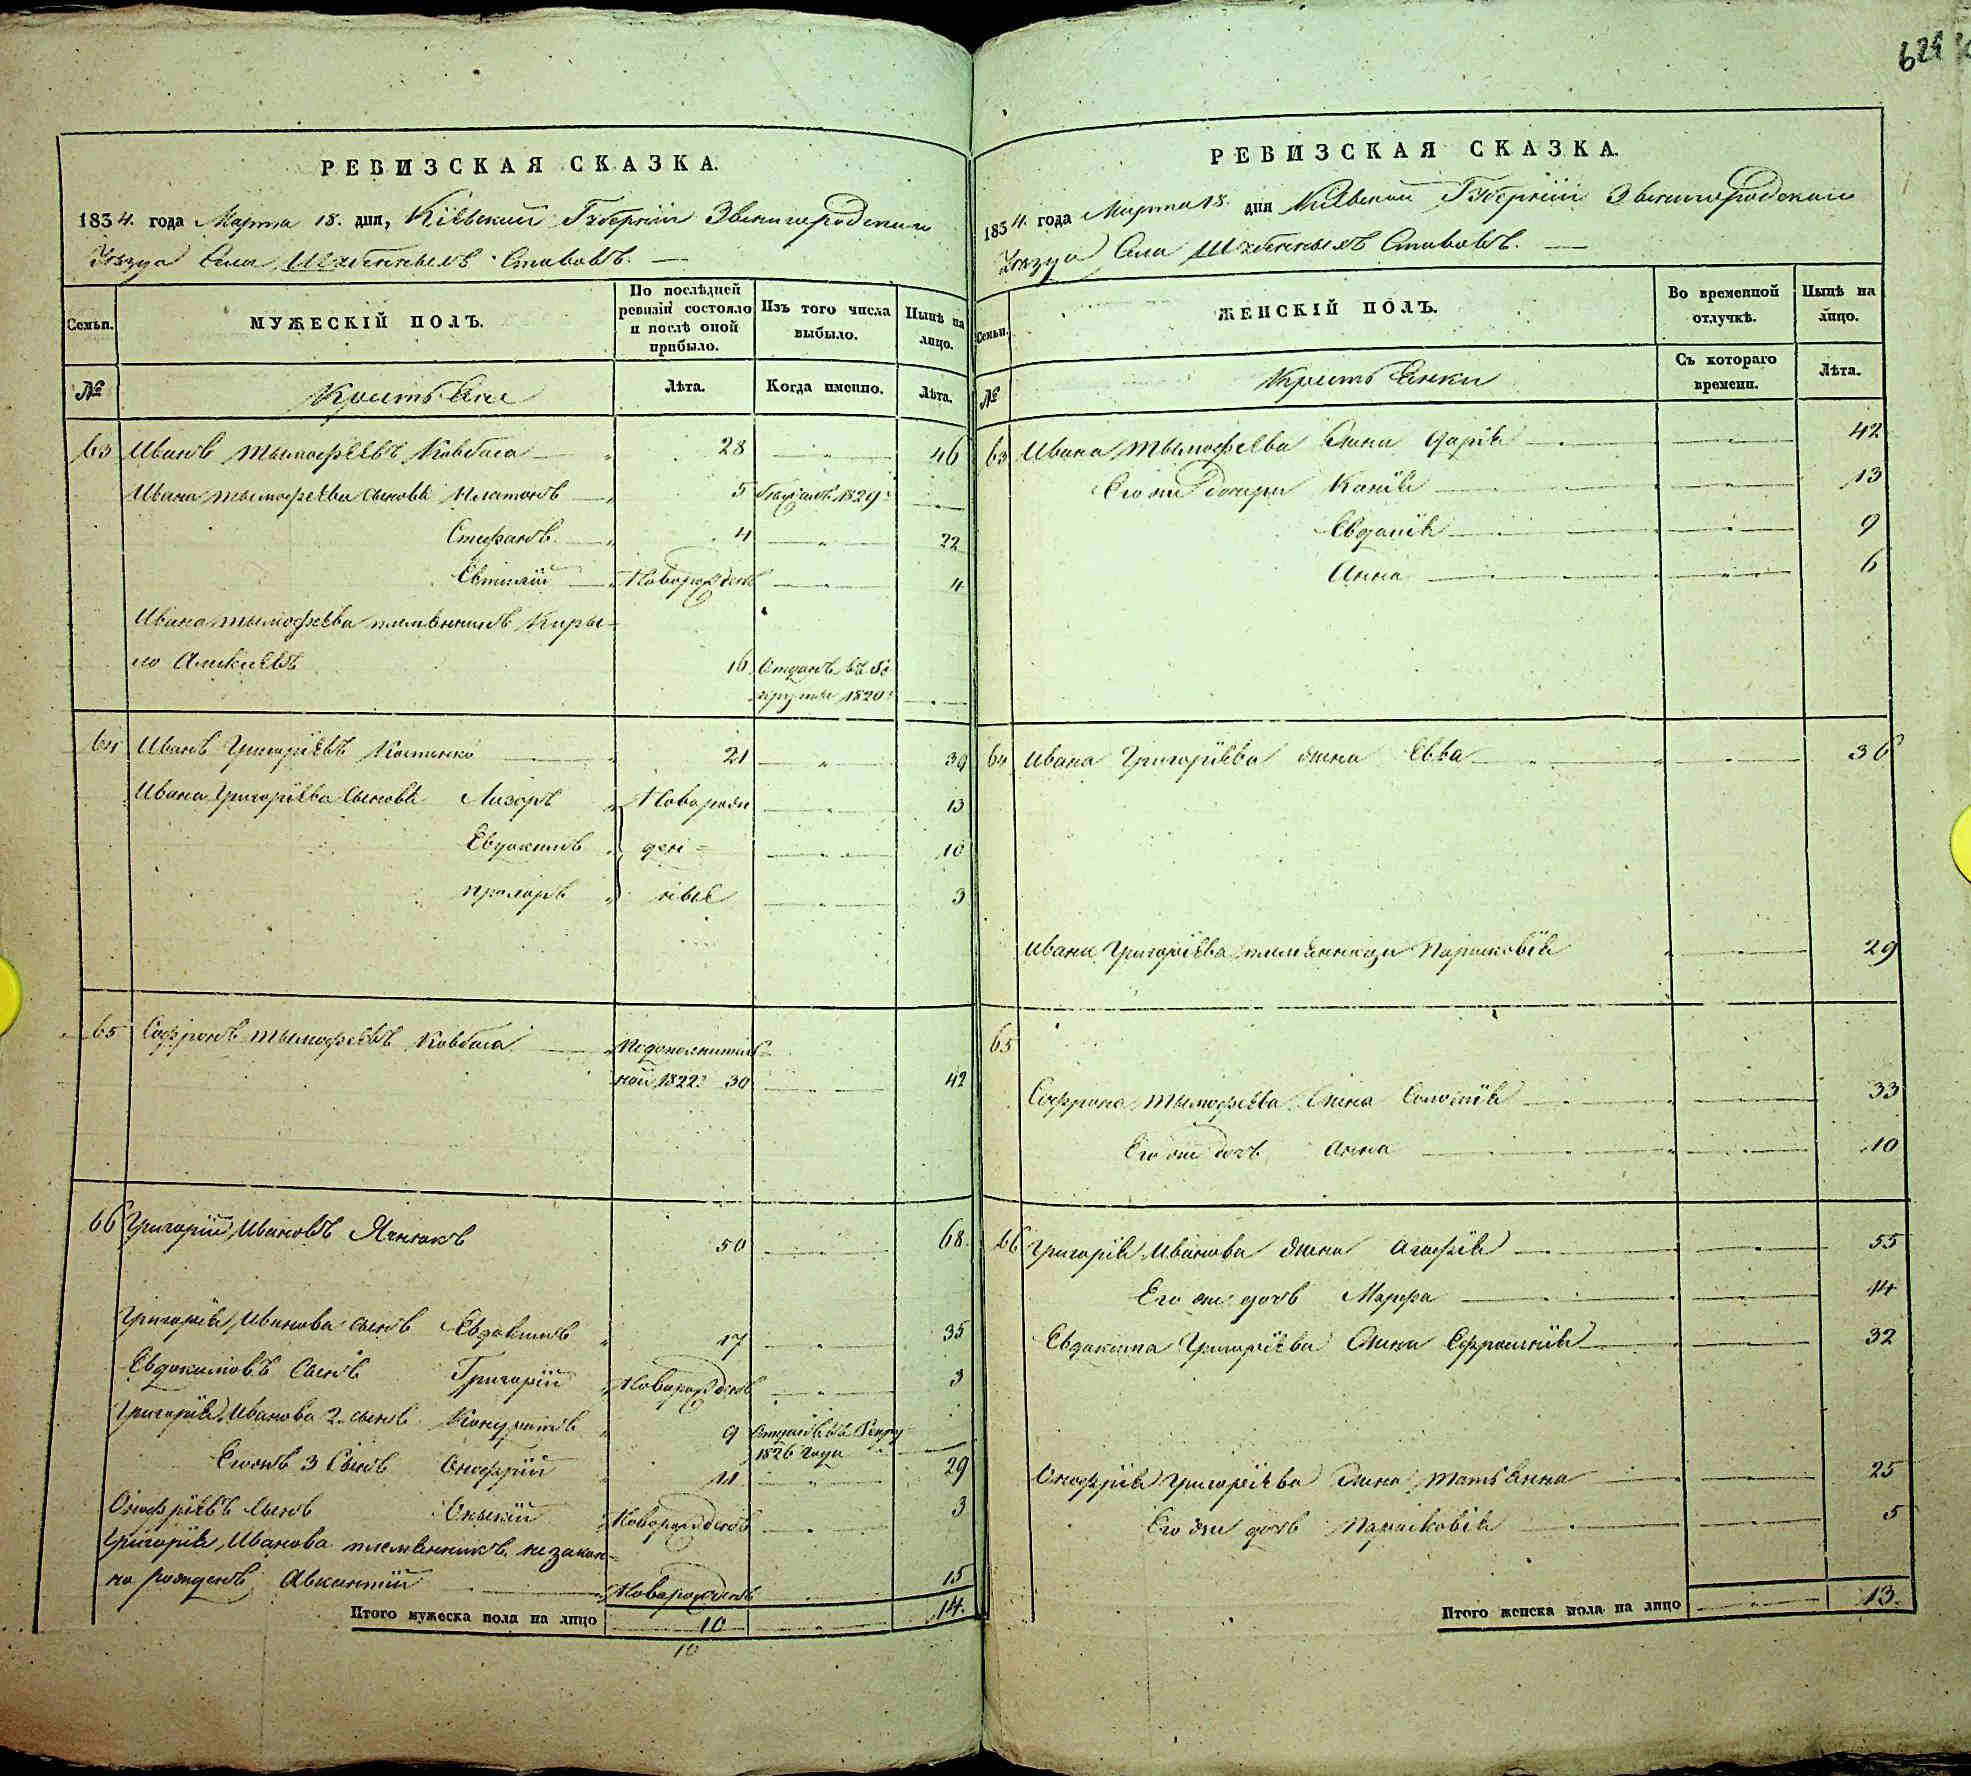 624
РЕВИЗСКАЯ СКАЗКА.
1834. года Марта 18. дня, Кіевской Губерніи Звенигородскаго
Уѣзда Села Шхбенныхъ Ставовъ.
Семьи.
МУЖЕСКІЙ ПОЛЪ.
По послѣдней ревизіи состояло и послѣ оной прибыло.
Изъ того числа выбыло.
Нынѣ на лицо.
№
Крестьяне
Лѣта.
Когда именно.
Лѣта.
63 Иванъ Тымофѣевъ Ковбаса 28 46
Ивана Тымофѣева сыновья Платонъ 5 1829
Стефанъ 4 22
Евтихій Новорожденъ 4
Ивана Тымофѣева племянникъ Киры-
ло Алексѣевъ 16 Отданъ въ Ре-
круты 1820
64 Иванъ Григорьевъ Костенко 21 39
Ивана Григорьева сыновья Лазоръ Новорож 13
Евдокимъ ден- 10
Прохоръ ныѣ 3
65 Софронъ Тымофѣевъ Ковбаса По дополнитель-
ной 1822 30 42
66 Григорій Ивановъ 50 68
Григорія Иванова сынъ Евдокимъ 17 35
Евдокимовъ сынъ Григорій Новорожденъ 3
Григорія Иванова 2 сынъ Кондратъ 9 Отданъ въ Рекру
1826 года
Его же 3 сынъ Онофрій 11 29
Онофріевъ сынъ Новорожденъ 3
Григорія Иванова племянникъ незакон-
но рожденъ Авксентій Новорожденъ 15
Итого мужеска пола на лицо 10 14.
10
РЕВИЗСКАЯ СКАЗКА.
1834. года Марта 18. дня Кіевской Губерніи Звенигородскаго
Уѣзда Села Шхбенныхъ Ставовъ.
Семьи.
ЖЕНСКІЙ ПОЛЪ.
Во временной отлучкѣ.
Нынѣ на лицо.
№
Крестьянки
Съ котораго времени.
Лѣта.
63 Ивана Тымофѣева жена Дарія 42
Его же дочери Ксенія 13
Евдокія 9
Анна 6
64 Ивана Григорьева жена Евва 36
Ивана Григорьева племянница Парасковія 29
65
Софрона Тымофѣева жена Соломія 33
Его же дочь Анна 10
66 Григорія Иванова жена Агафія 55
Его же дочь Марфа 14
Евдокима Григорьева жена Ефросинія 32
Онофрія Григорьева жена Татьянна 25
Его же дочь Парасковія 5
Итого женска пола на лицо 13.